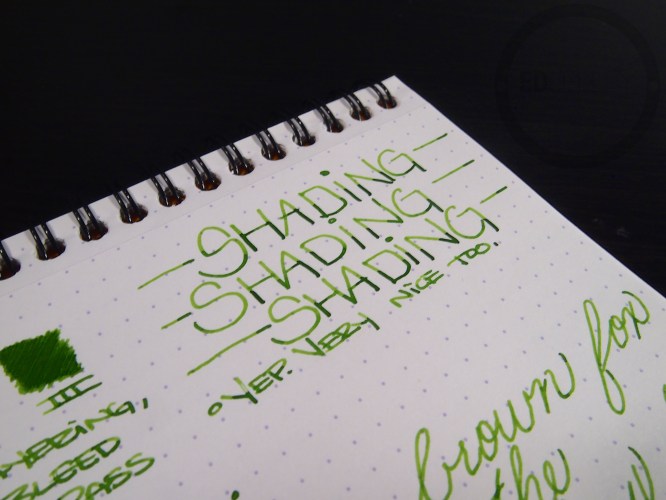 -SHADiNG-
-SHADiNG-
-SHADiNG-
YEP. VERY NiCE TOO.
III
BLEED
brown fox
the